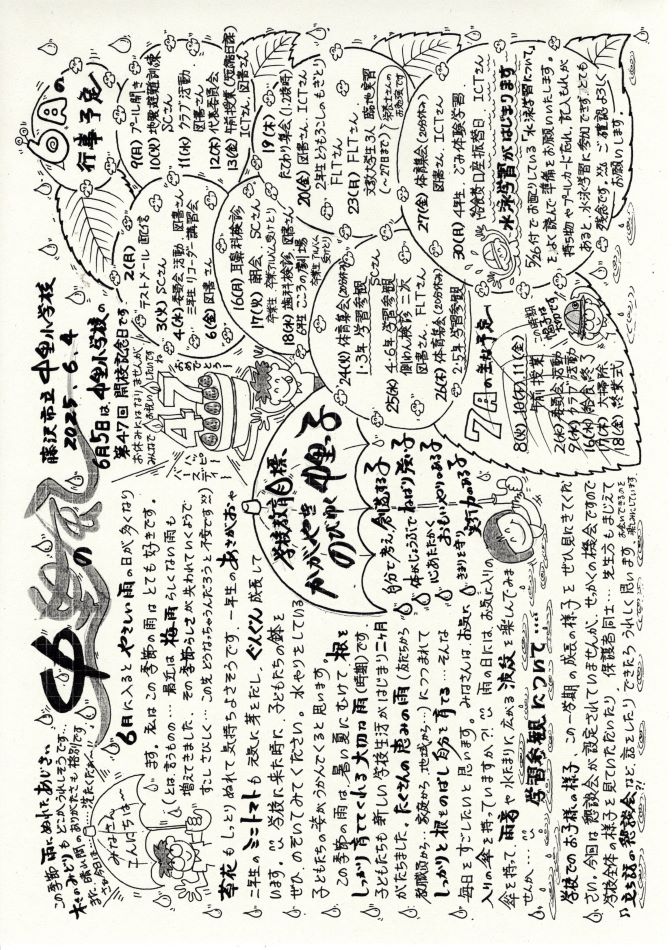 この季節 雨にぬれたあじさい
木々のみどりも どこかうれしそうです。
また、晴れ間のありがたさも 格別です
みなさん
こんにちは〜
中里の風
藤沢市立 中里小学校
2025. 6. 4
6月5日は、中里小学校の
第47回 開校記念日です
お休みにはなりませんが、
みんなで お祝いしたいですね
おめでとう
47
ハッピー
バースデー
6月に入ると やさしい雨の日が 多くなり
ます。私は この季節の雨は とても 好きです。
（とは 言うものの… 最近は 梅雨らしくない雨も
増えてきました。その季節らしさが 失われていくようで
すこしさびしく… この先 どうなっちゃうんだろうと 不安です）
草花も しっとり ぬれて 気持ちよさそうです。一年生の あさがおや
二年生の ミニトマトも 元気に 芽をだし、ぐんぐん 成長して
います。学校に来た時に、子どもたちの鉢を
ぜひ、のぞいてみてください。水やりをしている
子どもたちの姿が うかんでくると思います。
この季節の雨は、暑い夏にむけて 根を
しっかり 育ててくれる 大切な雨（時期）です。
子どもたちも 新しい学校生活が はじまり 二ヶ月
がたちました。たくさんの 恵みの雨（友だちから
教職員から… 家庭から 地域から…）につつまれて
しっかりと 根をのばし 自分を 育てる… そんな
毎日を すごしたいと 思います。みなさんは、お気に
入りの傘を 持っていますか？ 雨の日には、お気に入りの
傘を 持って 雨音や 水たまりに 広がる 波紋を 楽しんでみま
せんか…
学校教育目標
かがやき
のびゆく 中里っ子
自分で考え 創造する子
体がじょうぶで ねばり強い子
心あたたかく おもいやりのある子
きまりを守り 実行力のある子
学習参観について…
学校でのお子様の様子、この一学期の成長の様子を ぜひ見にきてくだ
さい。今回は 懇談会が 設定されていませんが、せっかくの機会ですので
学校全体の様子を見ていただいたり 保護者同士… 先生方もまじえて
立ち話の懇談会など、話をしたり できたら うれしく思います。
6月の
行事予定
2(月)
テストメール 配信
3(火) SCさん
4(水) 委員会活動 図書さん
三年生 リコーダー講習会
6(金) 図書さん
9(月) プール開き
10(火) 地震避難訓練
SCさん
11(水) クラブ活動
図書さん
12(木) 代表委員会
13(金) 午前授業(短縮日課)
ICTさん、図書さん
16(月) 耳鼻科検診
17(火) 朝会 SCさん
18(水) 歯科検診 図書さん
6年生 こころの劇場
19(木)
たてわり集会(1.2校時)
2年生とうもろこしのもぎとり
20(金) 図書さん、ICTさん
FLTさん
23(月) FLTさん
文教大学生3人 臨地実習
(〜27日まで)
24(火) 体育集会(20分休み)
1・3年 学習参観
SCさん
25(水) 4・6年 学習参観
側わん検診二次
図書さん、FLTさん
26(木) 体育集会(20分休み)
2・5年 学習参観
27(金) 体育集会(20分休み)
図書さん、ICTさん
30(月) 4年生 ごみ体験学習
給食費口座振替日 ICTさん
水泳学習がはじまります
5/26付で お配りしている「水泳学習について」
をよく読んで 準備をお願いいたします。
持ち物や プールカード忘れ、記入もれが
あると 水泳学習に参加できず とても
残念です。ご確認よろしく
お願いします。
7月の主な予定
8(火) 10(木) 11(金)
午前授業
2(水) 委員会活動
9(水) クラブ活動
16(水) 給食終了
17(木) 大掃除
18(金) 終業式